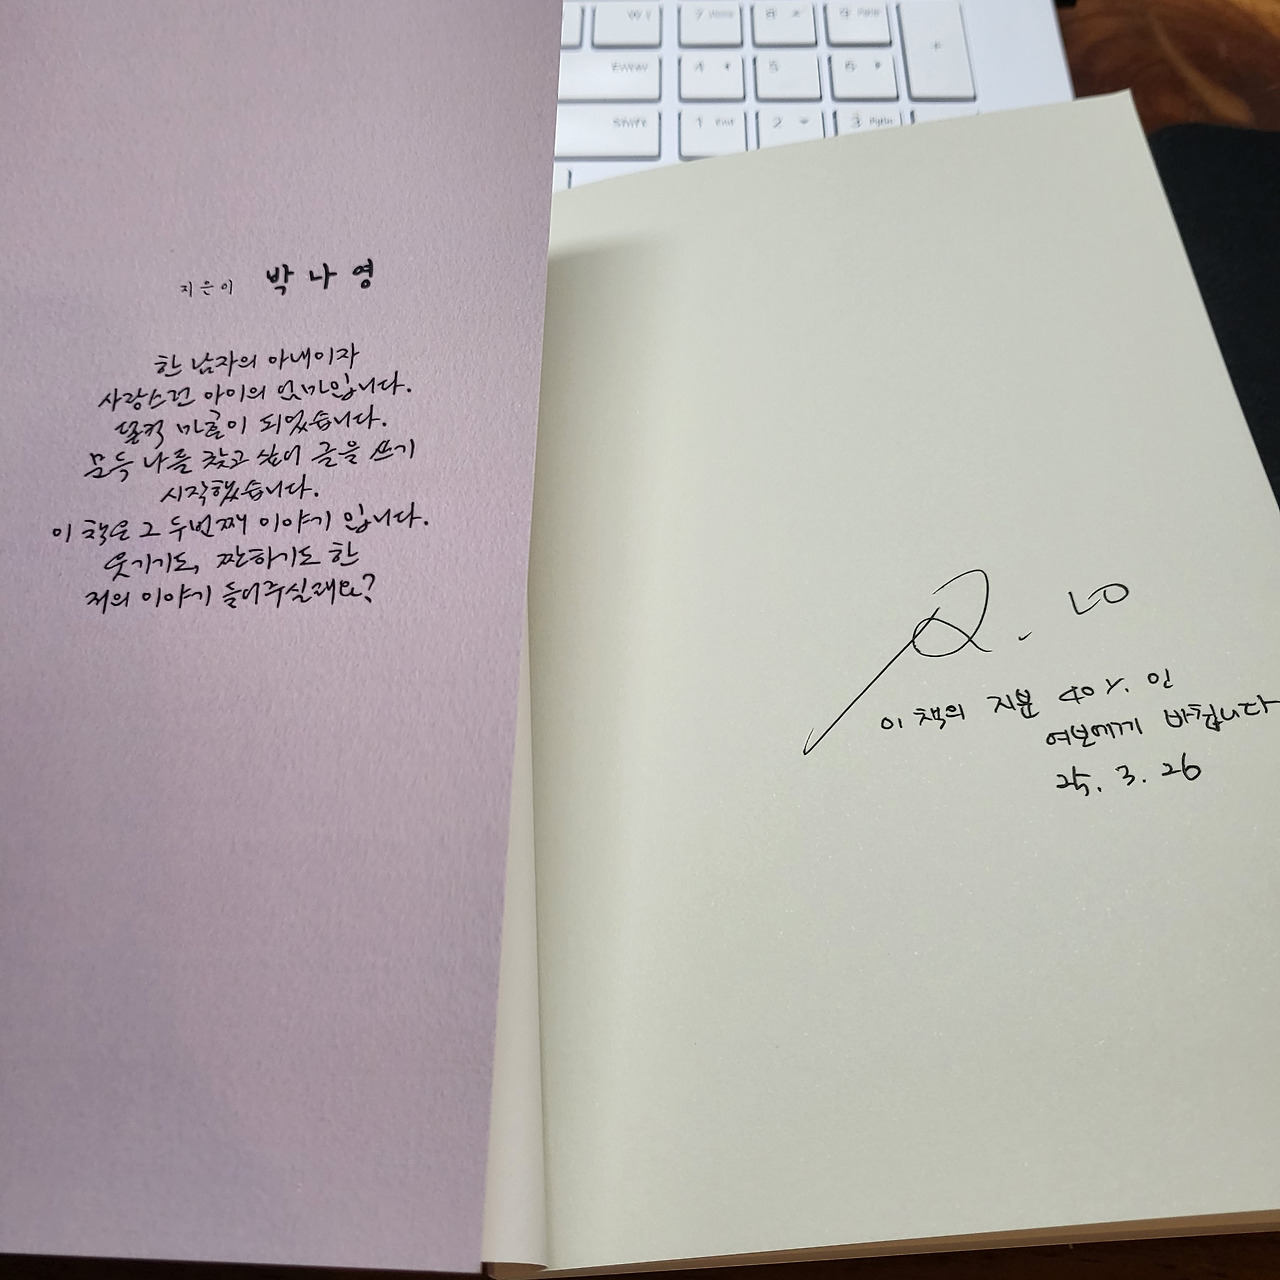 지은이 박나영
한 남자의 아내이자
사랑스런 아이의 엄마입니다.
덜컥 마흔이 되었습니다.
문득 나를 찾고 싶어 글을 쓰기
시작했습니다.
이 책은 그 두번째 이야기 입니다.
웃기기도, 짠하기도 한
저의 이야기 들어주실래요?
이 책의 지분 40%인
여보에게 바칩니다
25. 3. 26
Enter
7 Home
8
9 PgUp
+
4
5
6
Shift
1 End
2
3 PgDn